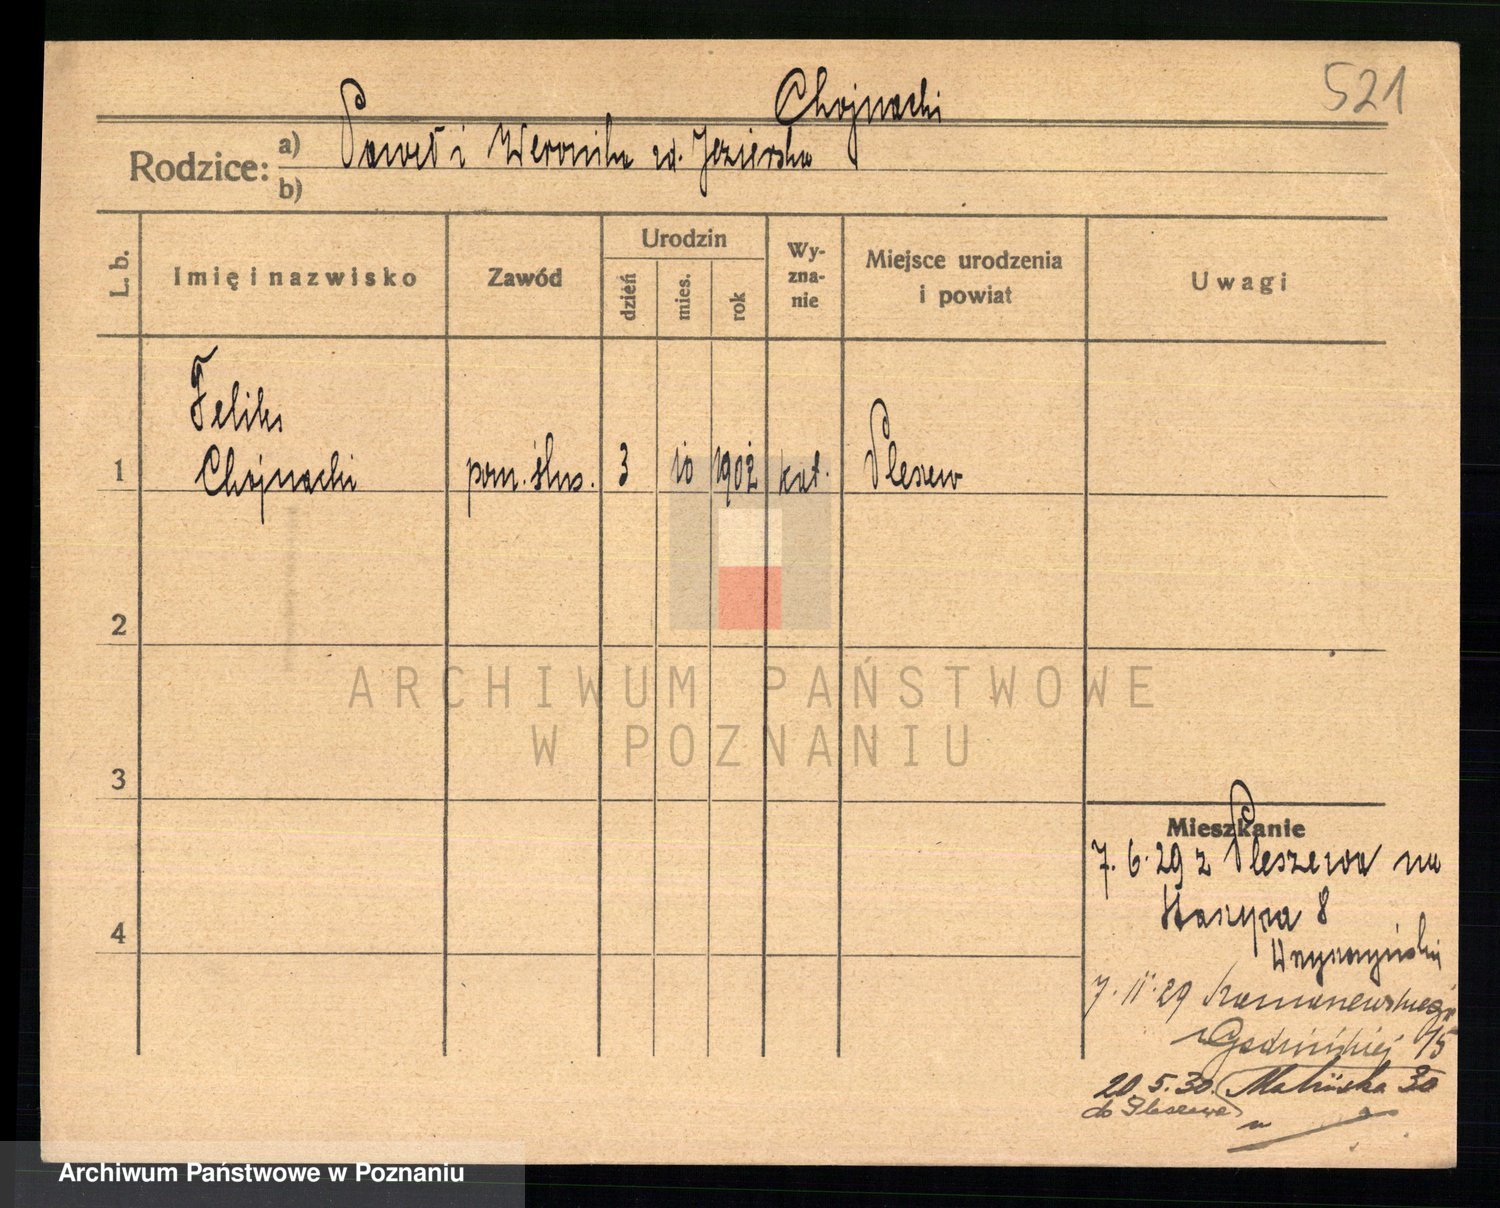 521
Chojnacki
Rodzice: a) Paweł i Weronika zd. Jezierska
b)
L. b. Imię i nazwisko Zawód Urodzin dzień mies. rok Wyznanie Miejsce urodzenia i powiat Uwagi
Feliks
1 Chojnacki pom. ślus. 3 10 1902 kat. Pleszew
2
ARCHIWUM PAŃSTWOWE
W POZNANIU
3
Mieszkanie
7.6.29 z Pleszewa na
8
4
7.11.29
15
20.5.30. 30
do Pleszewa
Archiwum Państwowe w Poznaniu